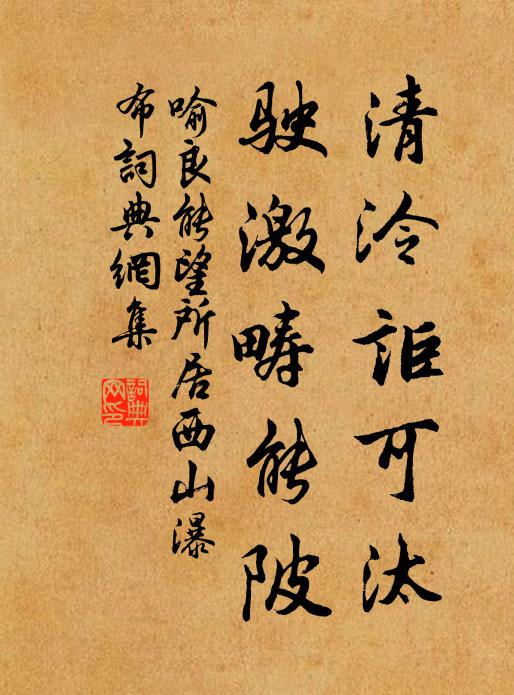 清泠詎可汰
駛激疇能陂
喻良能望所居西山瀑
布詞典網集
詞典網印